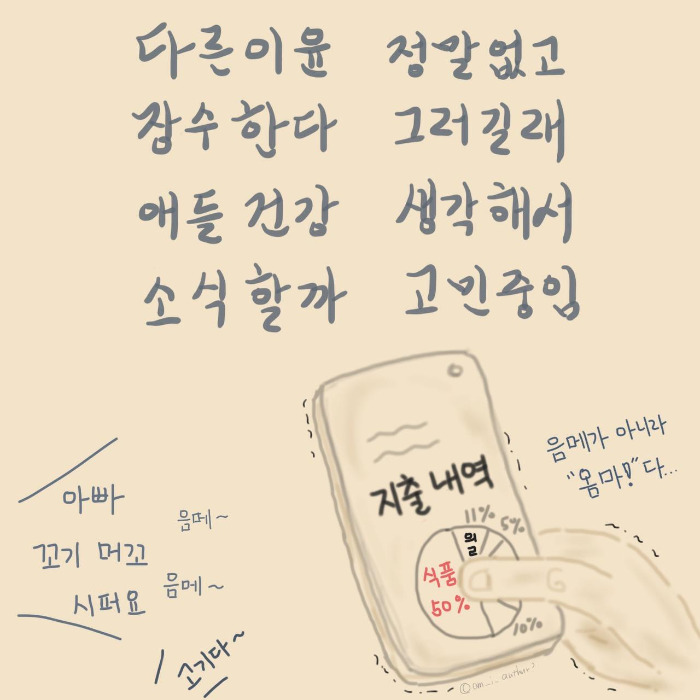 다른이윤 정말없고
잠수한다 그러길래
애들 건강 생각해서
소식할까 고민중임
지출 내역
11% 5%
월
식품
50%
10%
음메가 아니라
"옴마!"다...
아빠
꼬기 머꼬
시퍼요
음메~
음메~
소기다~